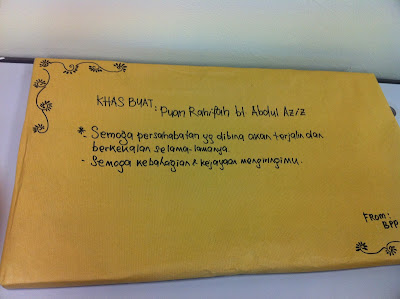 KHAS BUAT: Puan Rahifah bt Abdul Aziz
* - Semoga persahabatan yg dibina akan terjalin dan
berkekalan selama-lamanya.
- Semoga kebahagian & kejayaan mengiringimu.
From:
BPP